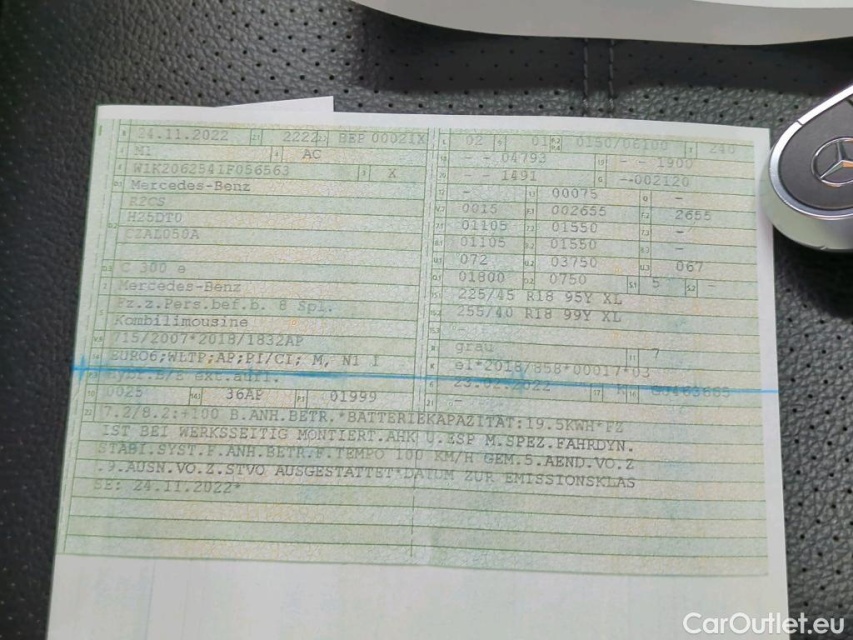 24.11.2022 2222 BEP 00021X
M1 AC
W1K2062541F056563 X
Mercedes-Benz
R2CS
H25DT0
CZAL050A
C 300 e
Mercedes-Benz
Fz.z.Pers.bef.b. 8 Spl.
Kombilimousine
715/2007*2018/1832AP
EURO6;WLTP;AP;PI/CI; M, N1 I
Hybr.B/E ext.aufl.
0025 36AP 01999
02 01 0150/06100 240
- - 04793 - - 1900
- - 1491 --002120
- 00075 -
0015 002655 2655
01105 01550 -
01105 01550 -
072 03750 067
01800 0750 5 -
225/45 R18 95Y XL
255/40 R18 99Y XL
-
grau 7
e1*2018/858*00017*03
23.02.2022
-
7.2/8.2:+100 B.ANH.BETR.*BATTERIEKAPAZITAT:19.5KWH*FZ
IST BEI WERKSSEITIG MONTIERT.AHK U.ESP M.SPEZ.FAHRDYN.
STABI.SYST.F.ANH.BETR.F.TEMPO 100 KM/H GEM.5.AEND.VO.Z
.9.AUSN.VO.Z.STVO AUSGESTATTET*DATUM ZUR EMISSIONSKLAS
SE: 24.11.2022*
CarOutlet.eu